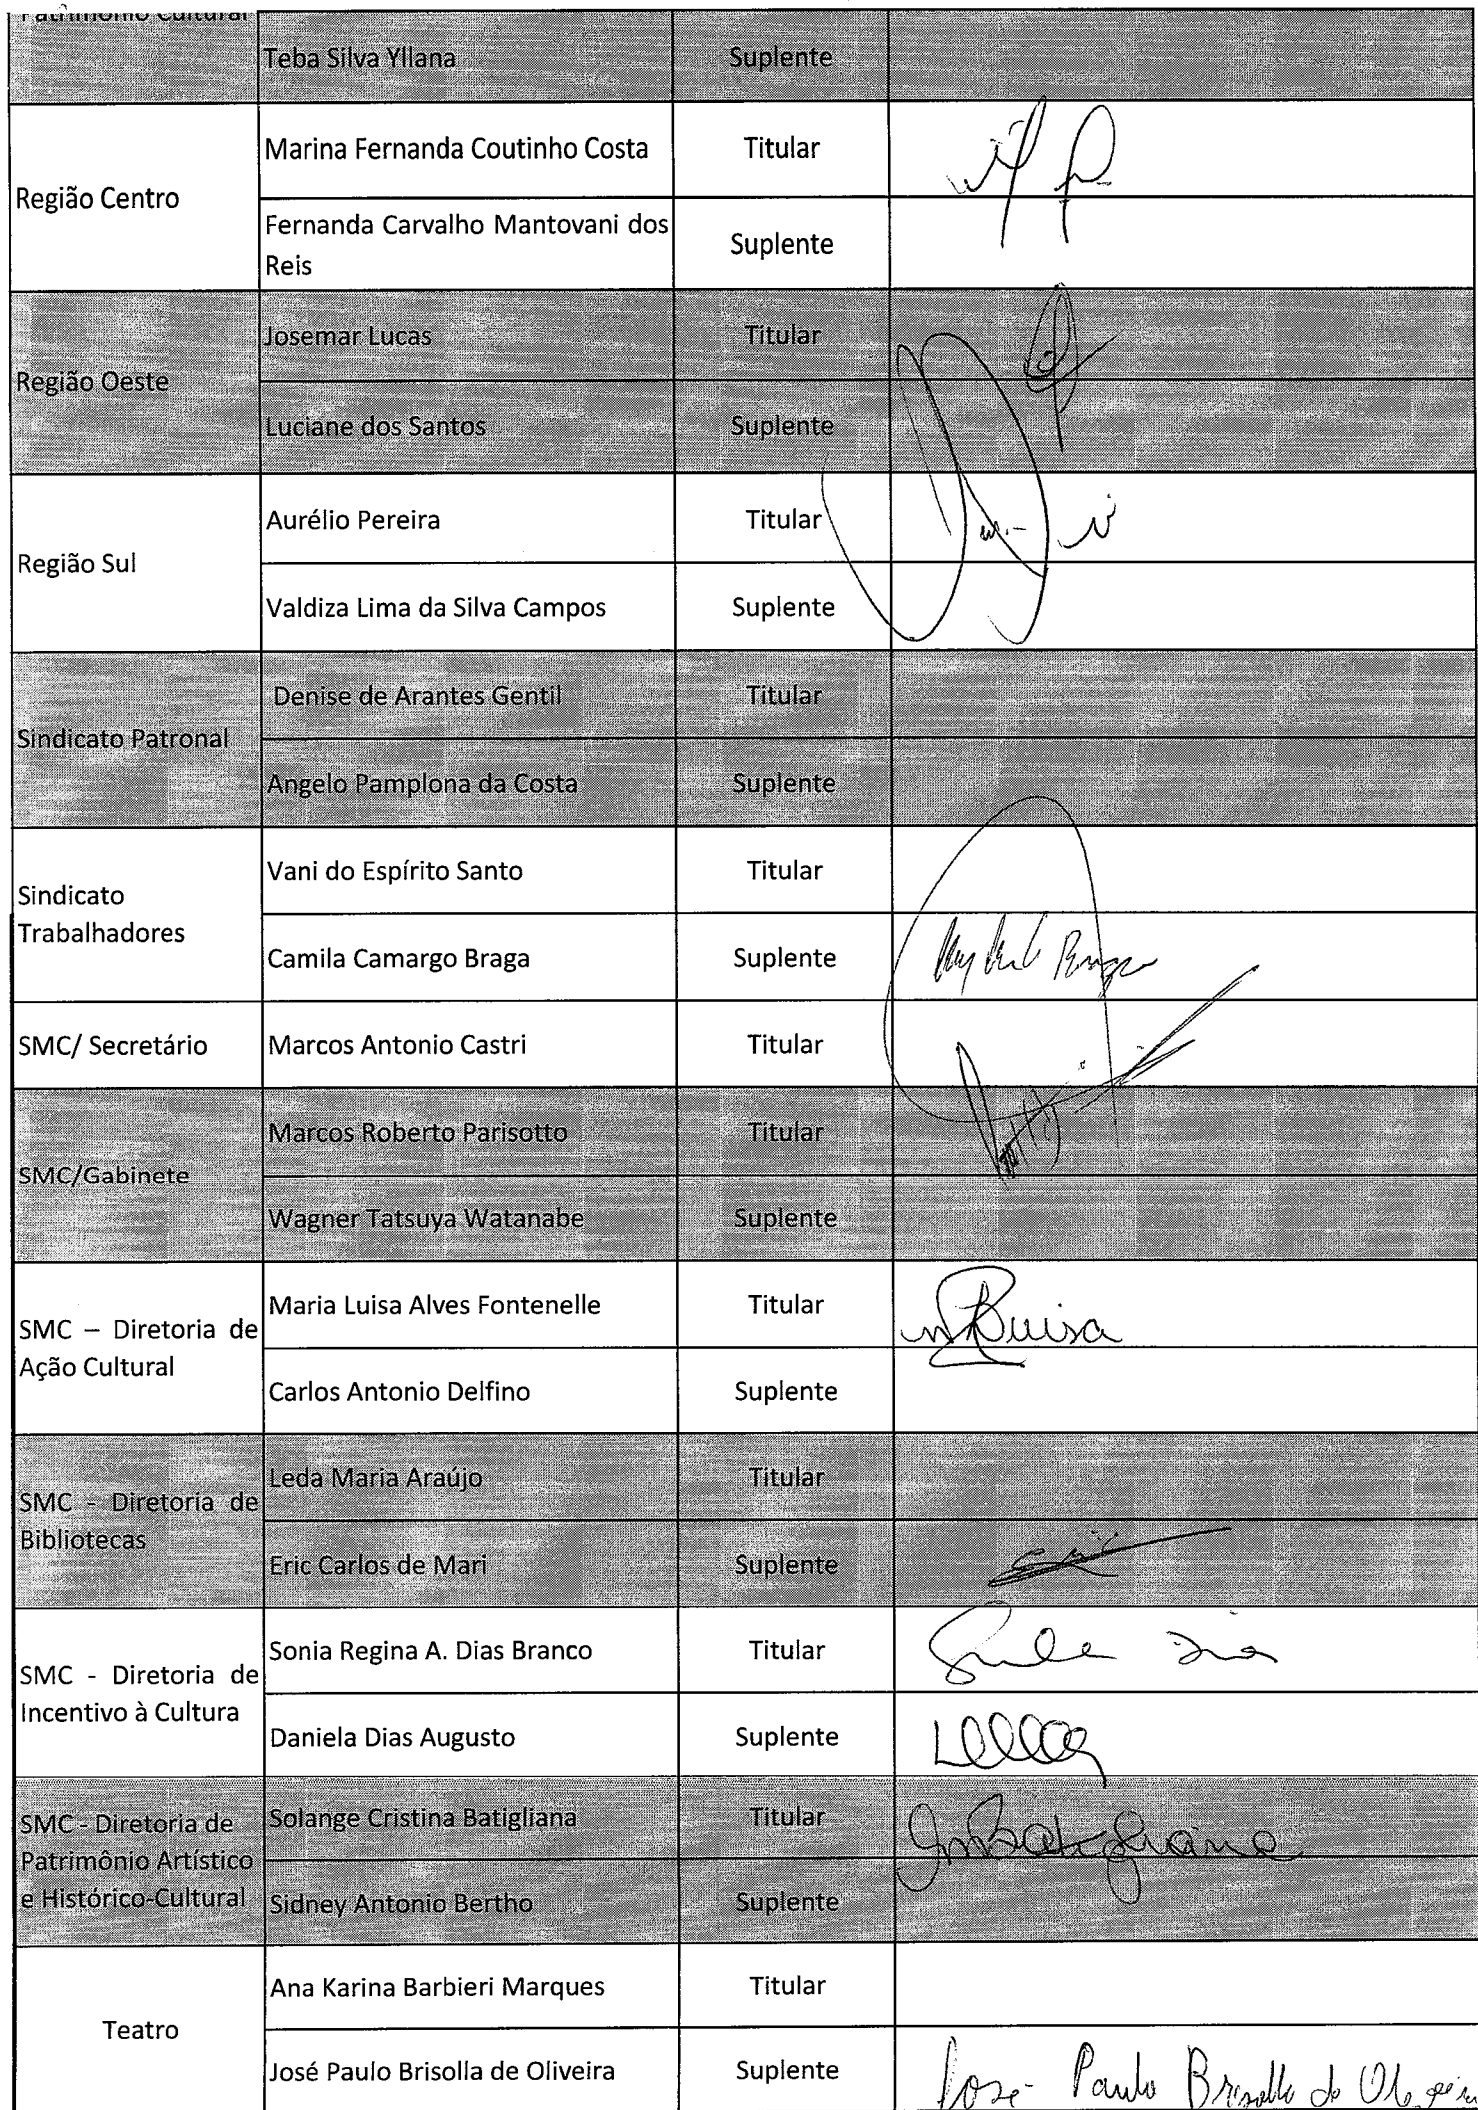 Patrimônio Cultural
Teba Silva Yllana Suplente
Região Centro
Marina Fernanda Coutinho Costa Titular
Fernanda Carvalho Mantovani dos Reis Suplente
Região Oeste
Josemar Lucas Titular
Luciane dos Santos Suplente
Região Sul
Aurélio Pereira Titular
Valdiza Lima da Silva Campos Suplente
Sindicato Patronal
Denise de Arantes Gentil Titular
Angelo Pamplona da Costa Suplente
Sindicato
Trabalhadores
Vani do Espírito Santo Titular
Camila Camargo Braga Suplente
SMC/ Secretário Marcos Antonio Castri Titular
SMC/Gabinete
Marcos Roberto Parisotto Titular
Wagner Tatsuya Watanabe Suplente
SMC – Diretoria de
Ação Cultural
Maria Luisa Alves Fontenelle Titular
Carlos Antonio Delfino Suplente
SMC - Diretoria de
Bibliotecas
Leda Maria Araújo Titular
Eric Carlos de Mari Suplente
SMC - Diretoria de
Incentivo à Cultura
Sonia Regina A. Dias Branco Titular
Daniela Dias Augusto Suplente
SMC - Diretoria de
Patrimônio Artístico
e Histórico-Cultural
Solange Cristina Batigliana Titular
Sidney Antonio Bertho Suplente
Teatro
Ana Karina Barbieri Marques Titular
José Paulo Brisolla de Oliveira Suplente José Paulo Brisolla de Oliveira